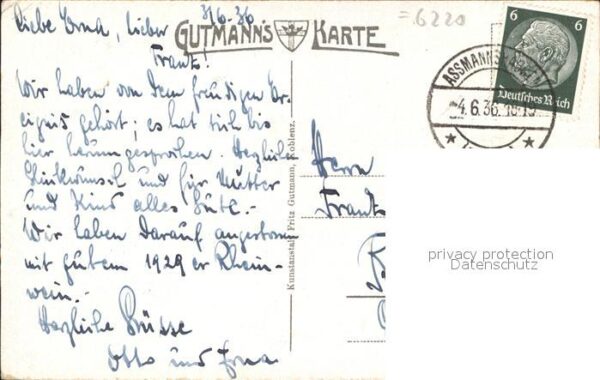 3/6.36
Liebe Erna, lieber
Frantz!
Wir haben von dem freudigen Er-
eignis gehört; es hat sich bis
hier herumgesprochen. Herzlich
Glückwunsch und für Mutter
und Kind alles Gute.-
Wir haben darauf angestossen
mit gutem 1929er Rhein-
wein.-
Herzliche Grüsse
Otto und Erna
GUTMANN'S KARTE
=6220
6 6
Deutsches Reich
ASSMANNSHAUSEN
-4.6.36.
Kunstanstalt Fritz Gutmann, Koblenz.
Herrn
Frantz
privacy protection
Datenschutz